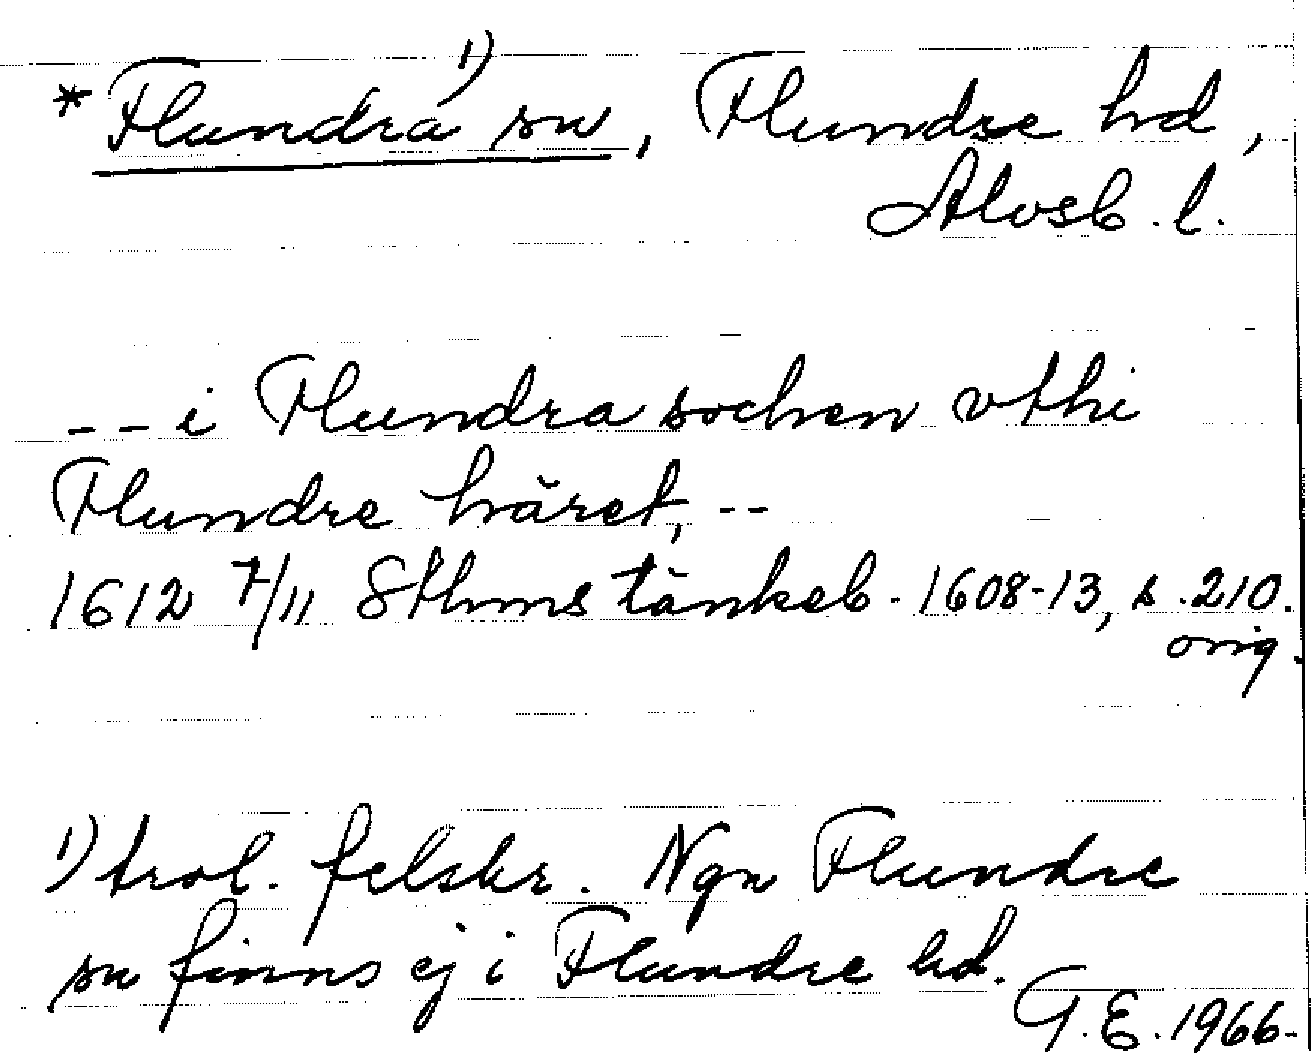 * Flundra 1) sn, Flundre hd,
Älvsb. l.
-- i Flundra sochen vthi
Flundre häret, --
1612 7/11 Sthms tänkeb. 1608-13, s. 210.
orig.
1) trol. felskr. Ngn Flundre
sn finns ej i Flundre hd.
G.E. 1966.